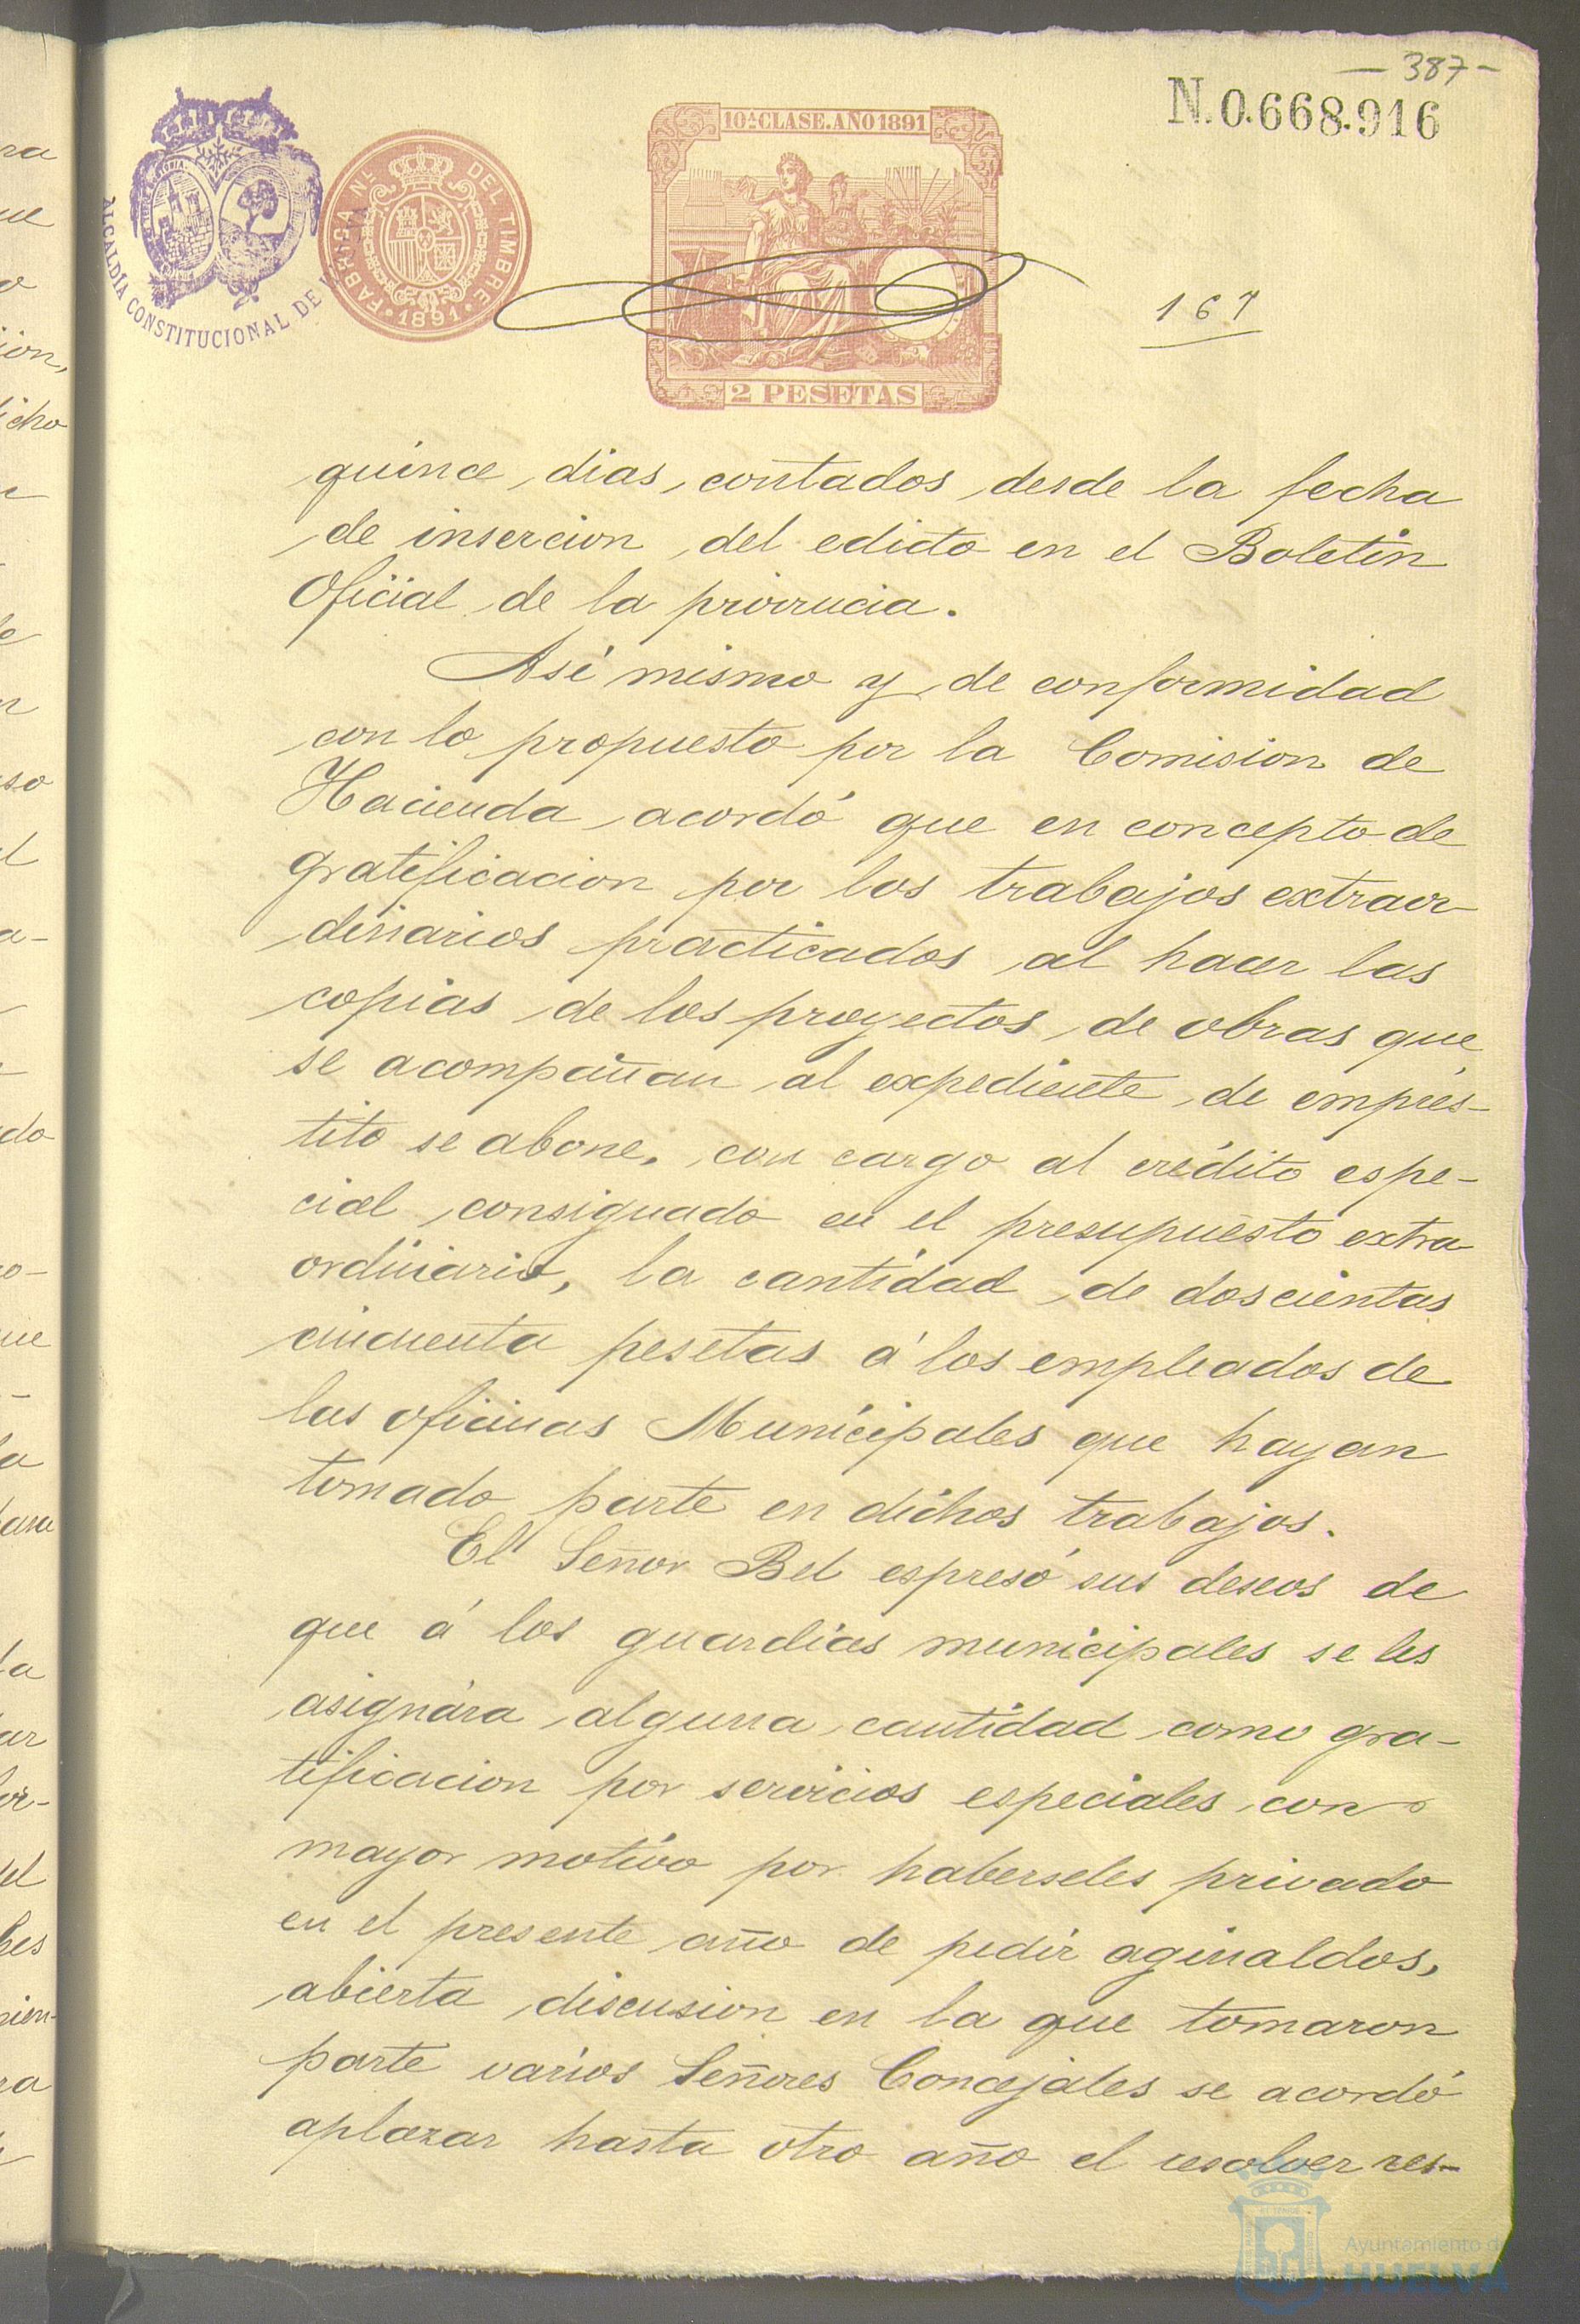 - 387 -
N.0.668.916
ALCALDÍA CONSTITUCIONAL DE
FABRICA NL. DEL TIMBRE
1891
10ª CLASE. AÑO 1891
2 PESETAS
167
quince dias, contados desde la fecha
de insercion del edicto en el Boletin
Oficial de la provincia.
Asi mismo y de conformidad
con lo propuesto por la Comision de
Hacienda acordó que en concepto de
gratificacion por los trabajos extraor
dinarios practicados al hacer las
copias de los proyectos de obras que
se acompañan al expediente de emprés-
tito se abone, con cargo al crédito espe-
cial consignado en el presupuesto extra
ordinario, la cantidad de doscientas
cincuenta pesetas á los empleados de
las oficinas Municipales que hayan
tomado parte en dichos trabajos.
El Señor Bel espresó sus deseos de
que á los guardias municipales se les
asignára alguna cantidad como gra-
tificacion por servicios especiales con
mayor motivo por haberseles privado
en el presente año de pedir aginaldos,
abierta discusion en la que tomaron
parte varios Señores Concejales se acordó
aplazar hasta otro año el resolver res-
Ayuntamiento de
HUELVA